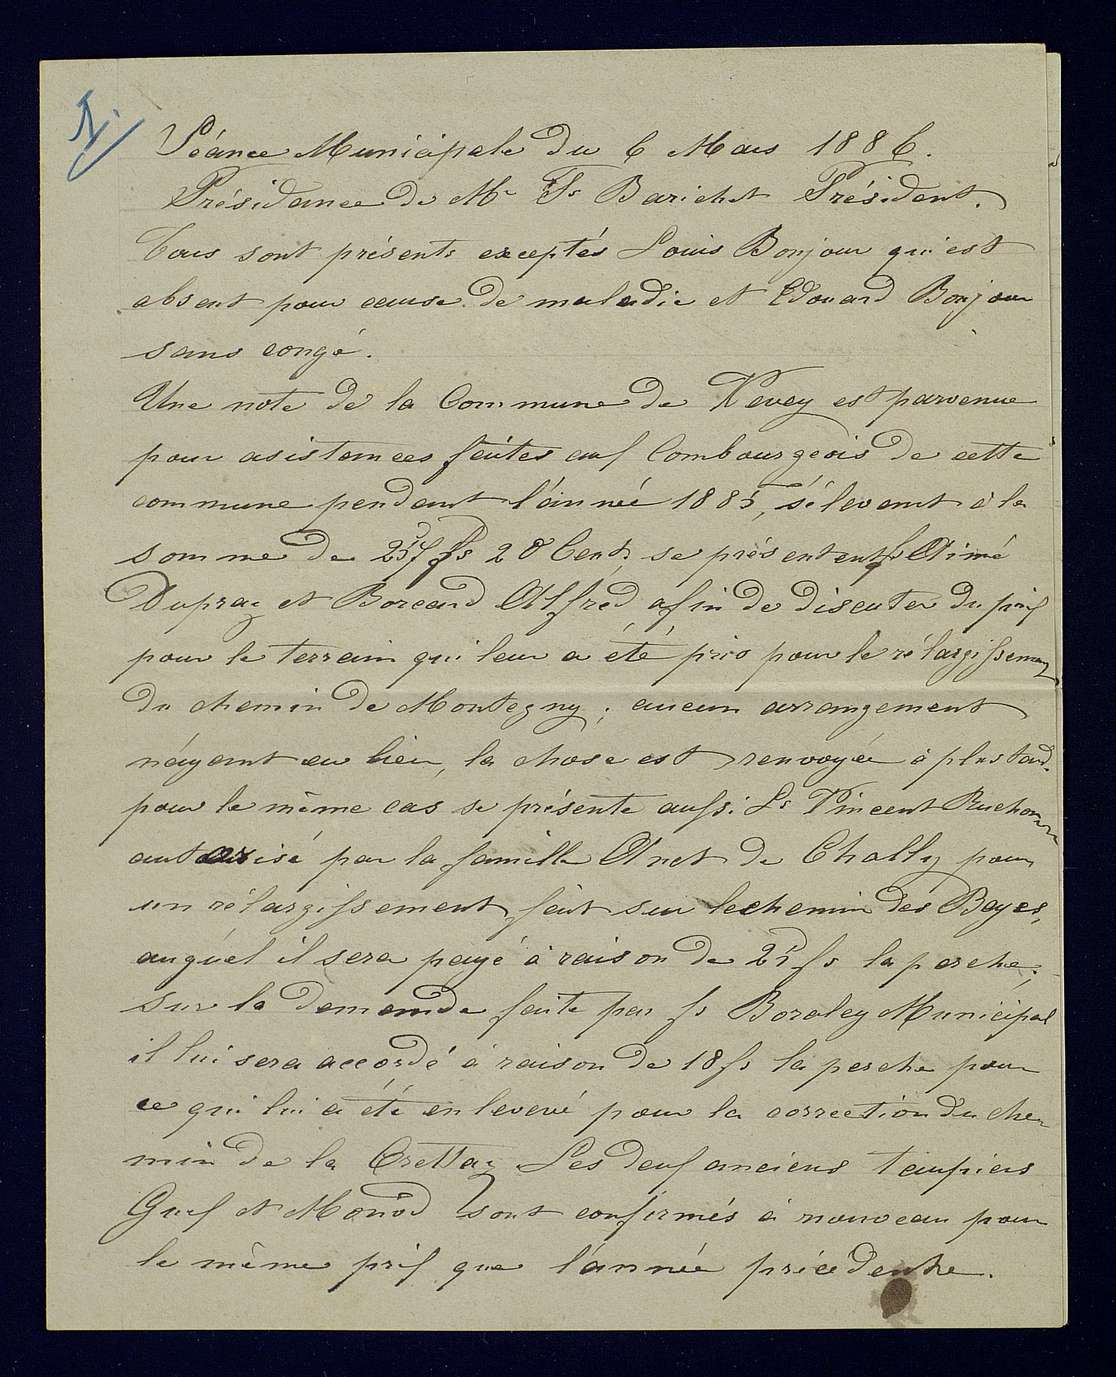 Séance Municipale du 6 Mars 1886.
Présidence de Mr Fs Barichet Président.
Tous sont présents exceptés Louis Bonjour qui est
absent pour cause de maladie et Edouard Bonjour
sans congé.
Une note de la Commune de Vevey est parvenue
pour asistances faites aux Combourgeois de cette
commune pendant l'année 1885, s'élevant à la
somme de frs 20 Cent, se présentent Aimé
Dupraz et Borcard Alfred afin de discuter du prix
pour le terrain qui leur a été pris pour le rélargissement
du chemin de Montegny; aucun arrangement
n'ayant eu lieu, la chose est renvoyée à plus tard.
pour le même cas se présente aussi Ls Vincent Ruchonnet
autorisé par la famille Anet de Chally pour
un rélargissement fait sur le chemin des Bayes,
auquel il sera payé à raison de 25 fs la perche;
sur la demande faite par fs Boraley Municipal
il lui sera accordé à raison de 18 fs la perche pour
ce qui lui a été enlevevé pour la correction du che-
min de la Crettaz Les deux anciens taupiers
Guex et Monod sont confirmés à nouveau pour
le même prix que l'année précédente.